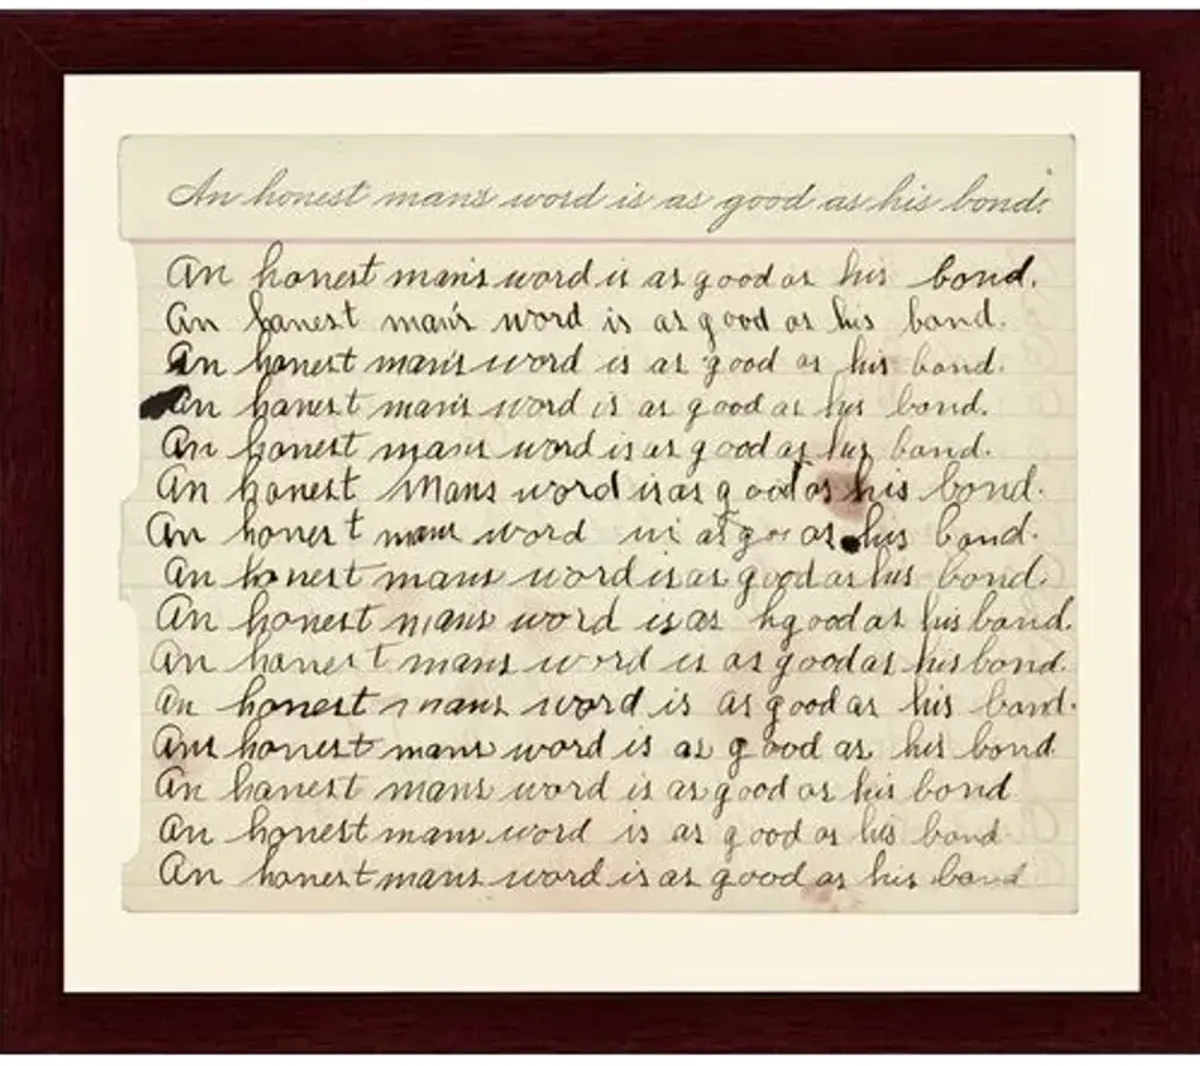 An honest man's word is as good as his bond.
An honest man's word is as good as his bond.
An honest man's word is as good as his bond.
An honest man's word is as good as his bond.
An honest man's word is as good as his bond.
An honest mans word is as good as his bond.
An honest Mans word is as good as his bond.
An honest mans word as as his bond.
An honest mans word is as good as his bond.
An honest mans word is as hgood as his bond.
An honest mans word is as good as his bond.
An honest mans word is as good as his bond.
An honest mans word is as good as his bond.
An honest mans word is as good as his bond
An honest mans word is as good as his bond
An honest mans word is as good as his bond